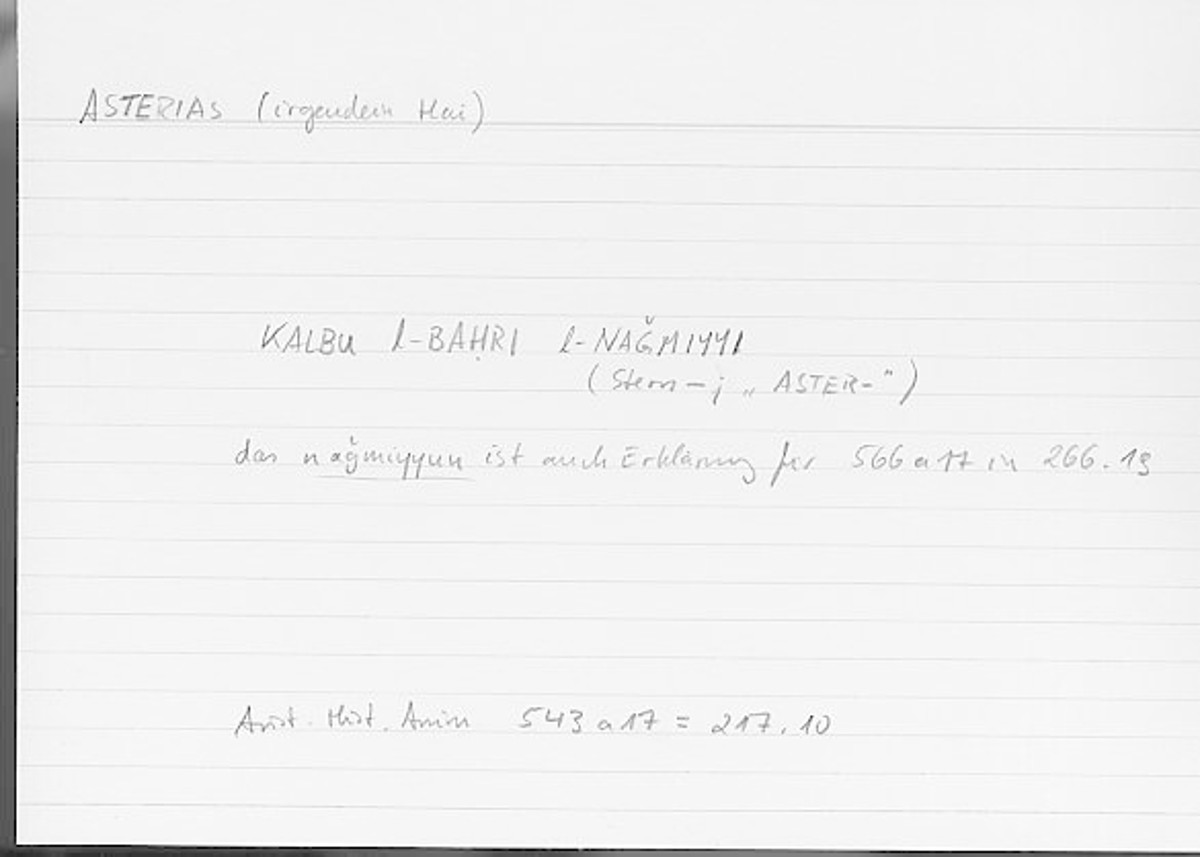 ASTERIAS (irgendein Hai)
KALBU l-BAḤRI l-NAǦMIYYI
(Stern-; „ASTER-")
das naǧmiyyun ist auch Erklärung für 566 a 17 in 266.19
Arist. Hist. Anim 543 a 17 = 217.10